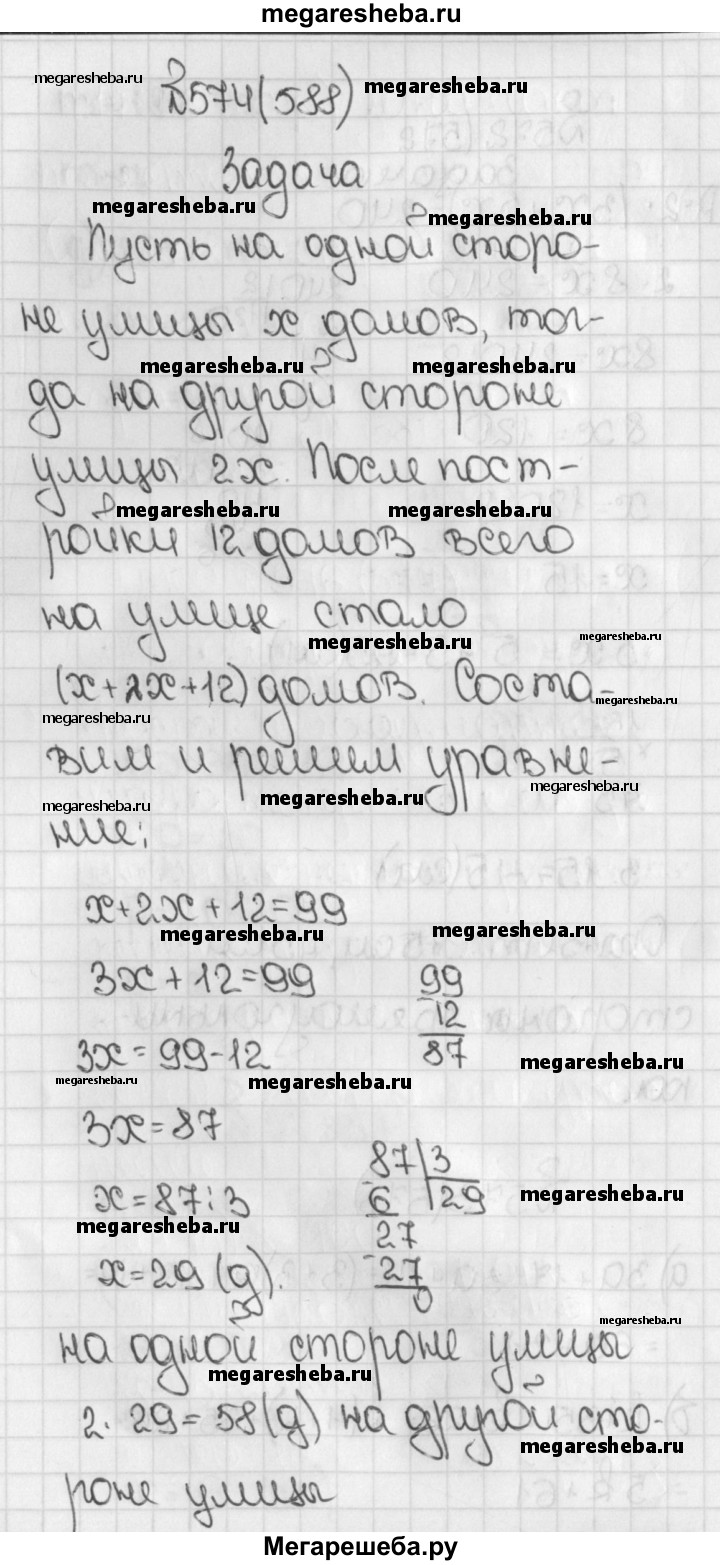 megaresheba.ru
megaresheba.ru №574(588) megaresheba.ru
Задача
megaresheba.ru megaresheba.ru
Пусть на одной сторо-
не улицы x домов, тог-
megaresheba.ru megaresheba.ru
да на другой стороне
улицы 2x. После пост-
megaresheba.ru megaresheba.ru
ройки 12 домов всего
на улице стало
megaresheba.ru megaresheba.ru
(x+2x+12) домов. Соста-
megaresheba.ru megaresheba.ru
вим и решим уравне-
megaresheba.ru megaresheba.ru megaresheba.ru
ние:
x+2x+12=99
megaresheba.ru megaresheba.ru
3x+12=99 99
3x=99-12 - 12
87 megaresheba.ru
megaresheba.ru megaresheba.ru
3x=87
87 3
x=87:3 - 6 29 megaresheba.ru
megaresheba.ru 27
x=29 (д). - 27
0
megaresheba.ru
на одной стороне улицы
megaresheba.ru
2·29=58(д) на другой сто-
megaresheba.ru
роне улицы
Мегарешеба.ру